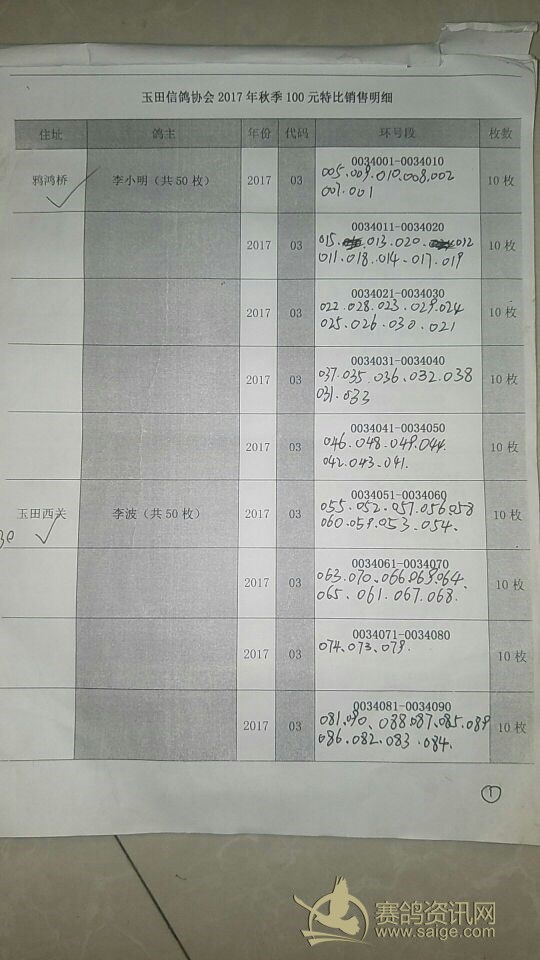 玉田信鸽协会 2017 年秋季 100 元特比销售明细
住址 鸽主 年份 代码 环号段 枚数
鸦鸿桥 李小明（共 50 枚） 2017 03 0034001-0034010 10 枚
005.009.010.008.002
007.001
2017 03 0034011-0034020 10 枚
015. 013.020. 012
011.018.014.017.019
2017 03 0034021-0034030 10 枚
022.028.023.029.024
025.026.030.021
2017 03 0034031-0034040 10 枚
037.035.036.032.038
031.033
2017 03 0034041-0034050 10 枚
046.048.049.044.
042.043.041.
玉田西关 李波（共 50 枚） 2017 03 0034051-0034060 10 枚
055.052.057.056.058
060.059.053.054.
30
2017 03 0034061-0034070 10 枚
063.070.066.069.064.
065.061.067.068.
2017 03 0034071-0034080 10 枚
074.073.079.
2017 03 0034081-0034090 10 枚
081.090.088.087.085.089
086.082.083.084.
1
赛鸽资讯网
www.saige.com